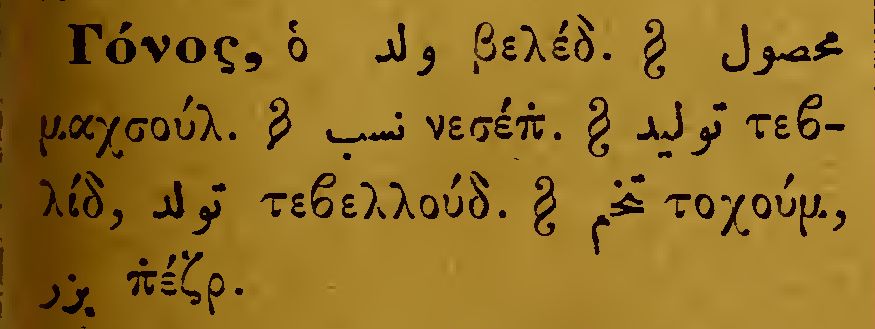 Γόνος, ὁ ولد βελέδ. § محصول
μαχσούλ. § نسب νεσέπ̇. § توليد τεβ-
λίδ, تولد τεβελλούδ. § تخم τοχούμ,
بزر π̇έζρ.